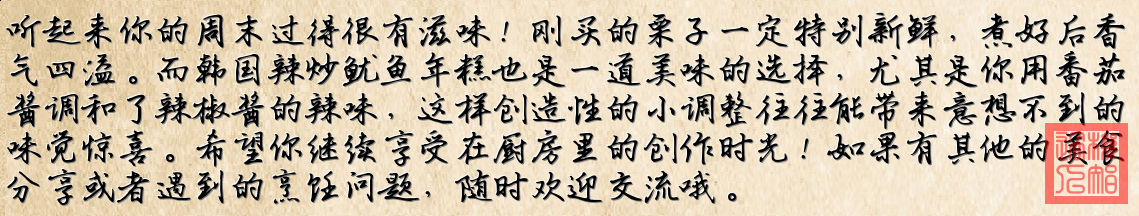 听起来你的周末过得很有滋味！刚买的栗子一定特别新鲜，煮好后香
气四溢。而韩国辣炒鱿鱼年糕也是一道美味的选择，尤其是你用番茄
酱调和了辣椒酱的辣味，这样创造性的小调整往往能带来意想不到的
味觉惊喜。希望你继续享受在厨房里的创作时光！如果有其他的美食
分享或者遇到的烹饪问题，随时欢迎交流哦。